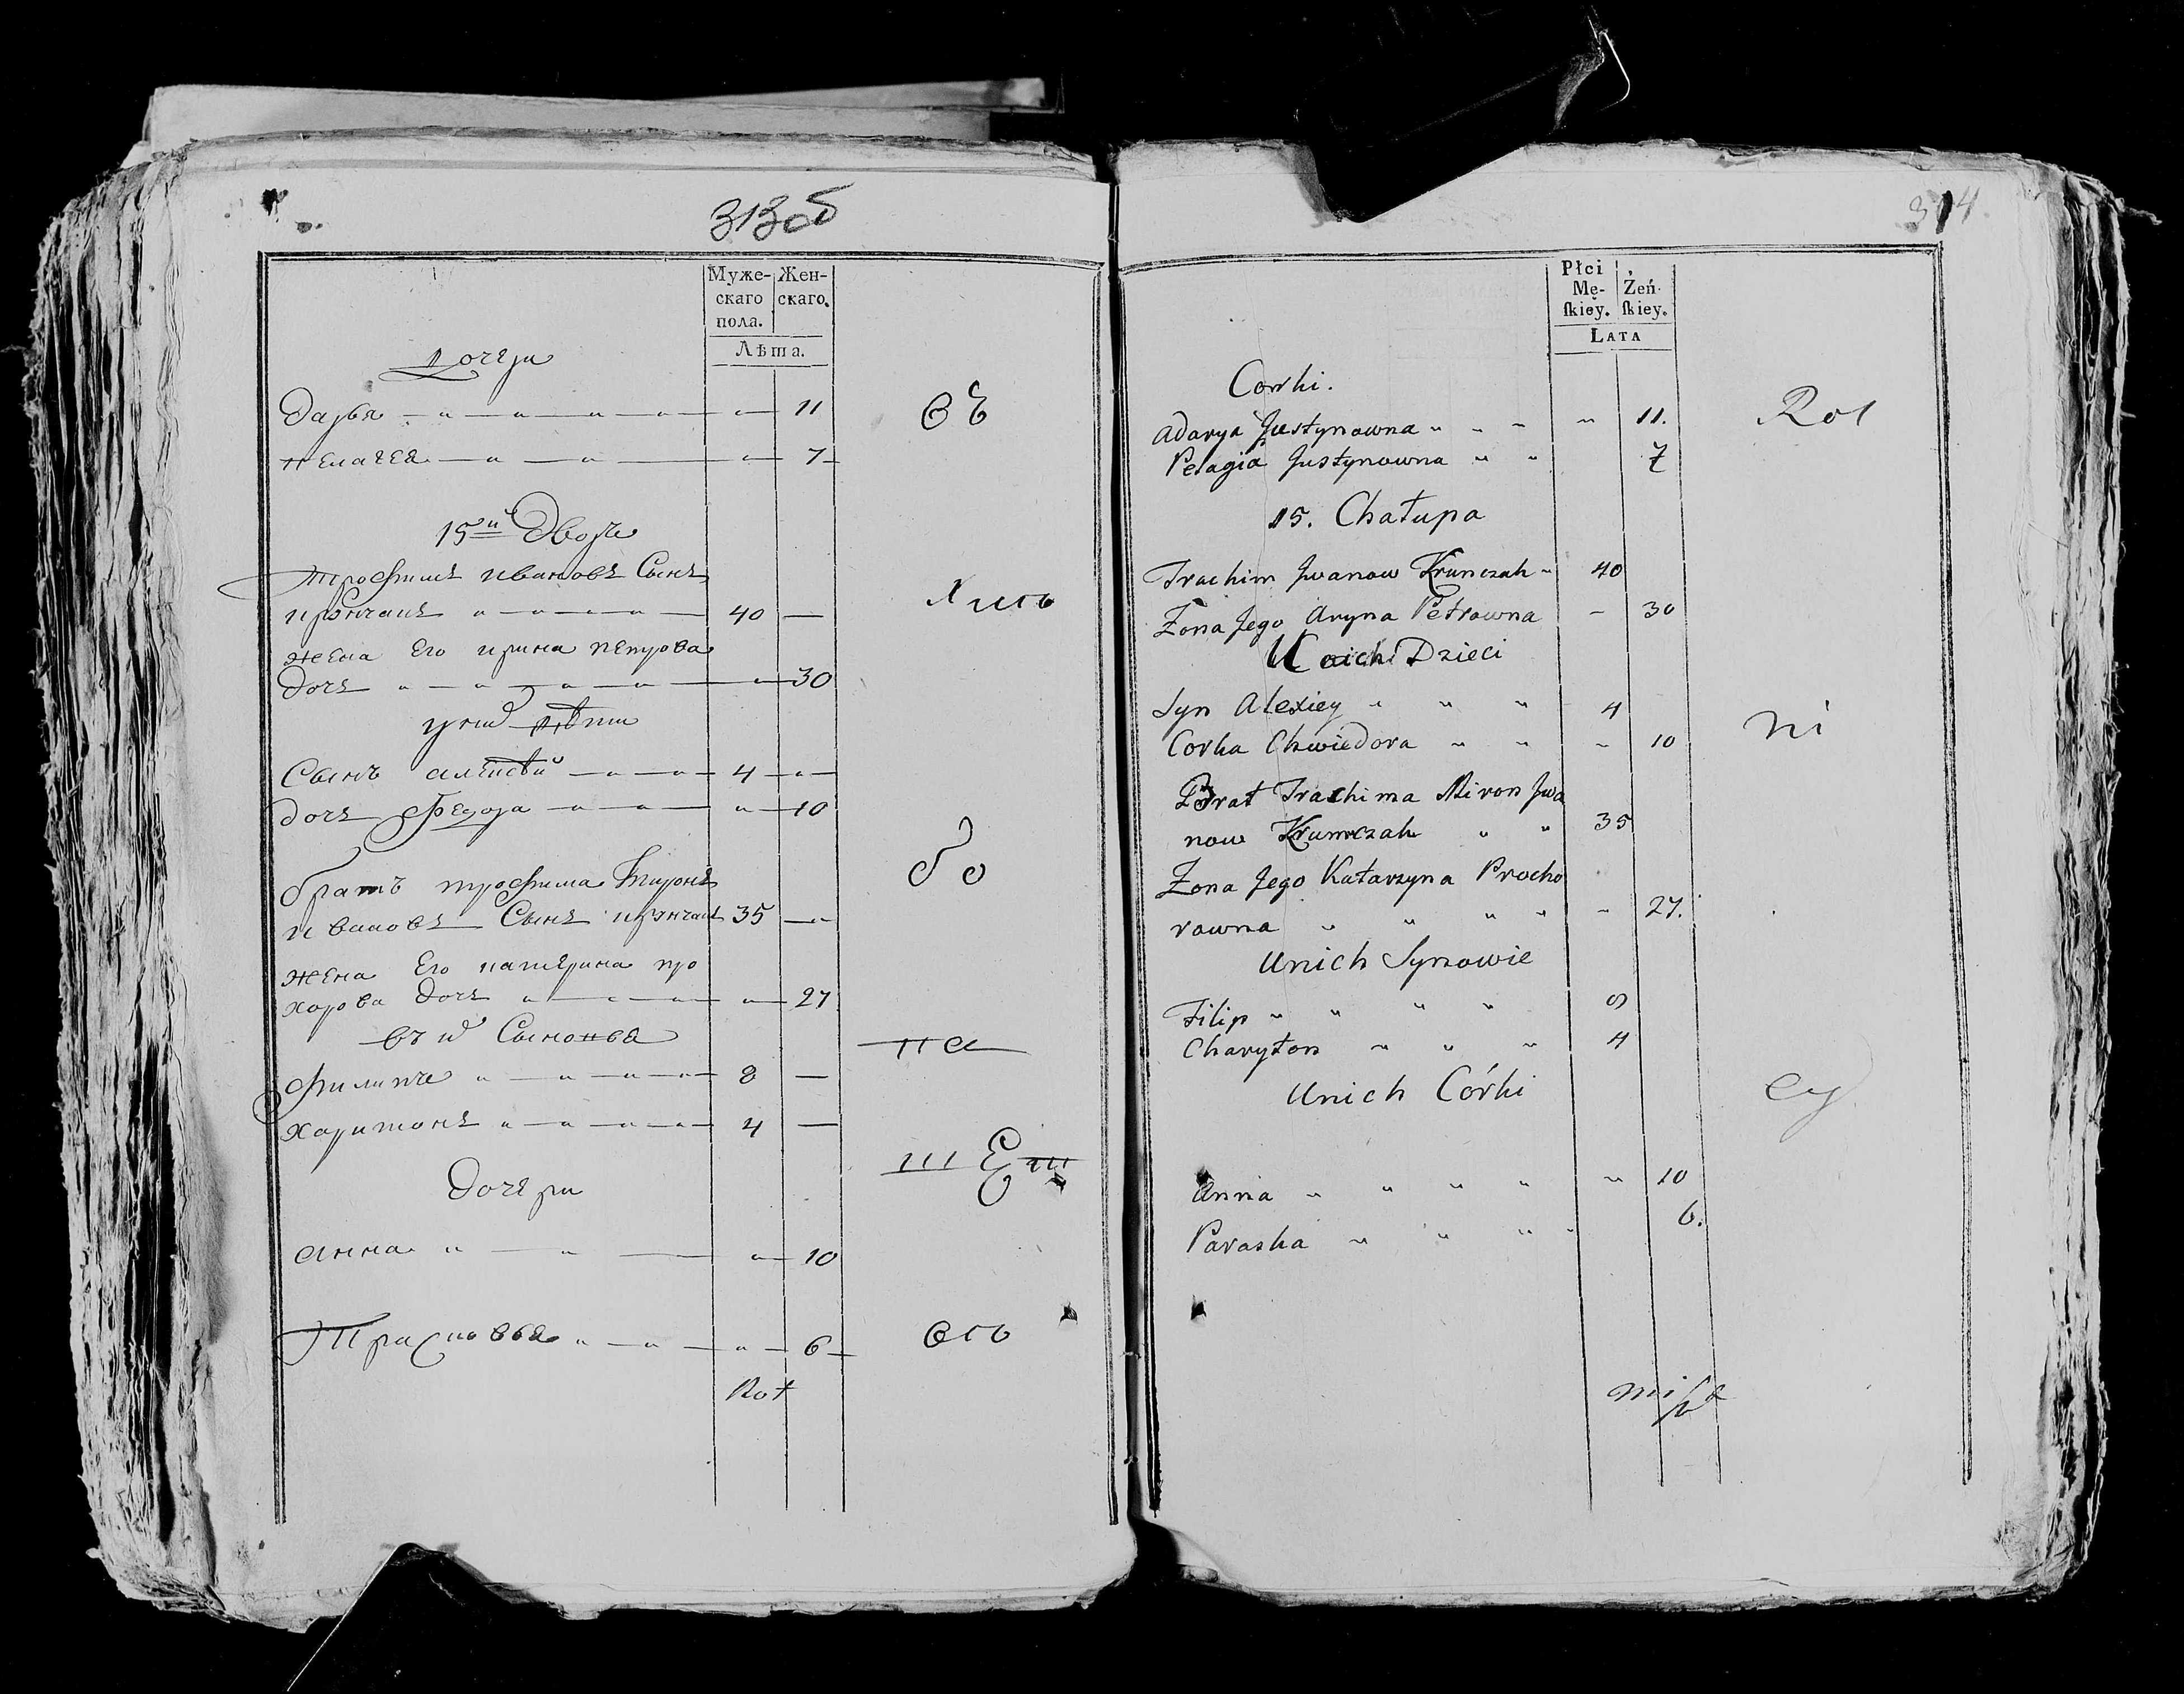 313об
Муже- Жен-
скаго скаго.
пола.
Лѣта.
дочери
Дарья 11
пелагея 7
15й Дворъ
Трофимъ ивановъ Сынъ
крупчакъ 40
жена Его ирина петрова
дочь 30
у них дѣти
Сынъ алексѣй 4
дочь Федора 10
братъ трофима Миронъ
ивановъ Сынъ 35
жена Его катерина про
хорова дочь 27
в них Сыновья
филипъ 8
харитонъ 4
дочери
анна 10
Прасковья 6
Rot
бо
па
314
Płci
Mę- Żeń-
ſkiey. ſkiey.
LATA
Corki.
Adarya Justynowna 11.
Pelagia Justynowna 7
15. Chałupa
Trachim Jwanow Krunczak 40
Zona Jego Aryna Petrowna 30
Unich Dzieci
Syn Alexiey 4
Corka Chwiedora 10
Brat Trachima Miron Jwa
now 35
Zona Jego Katarzyna Procho
rowna 27.
Unich Synowie
Filip 8
Charyton 4
Unich Córki
Anna 10
Paraska 6.
Rot
ni